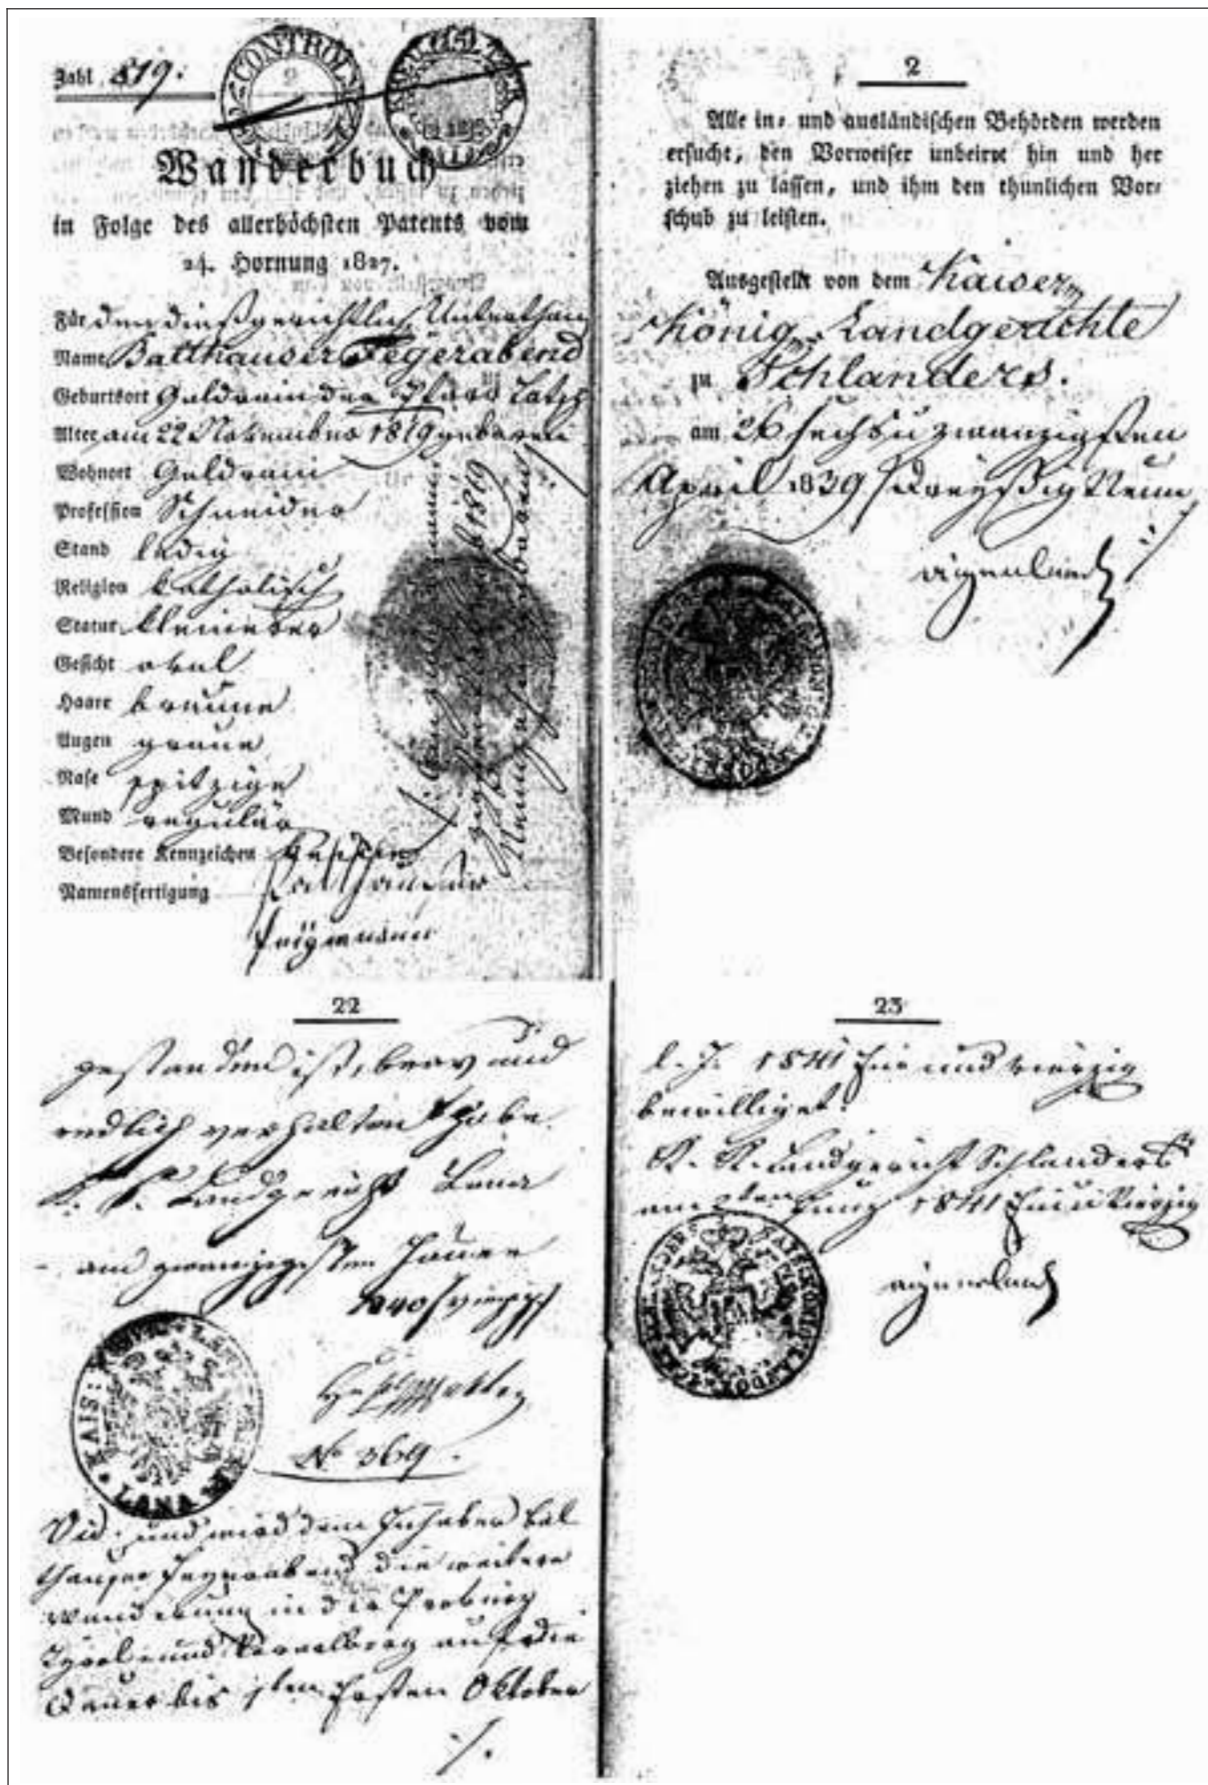 Zahl 819.
CONTROL
Wanderbuch
in Folge des allerhöchsten Patents vom
24. Hornung 1827.
Für den dießgerichtlich. Unterthan
Name Balthauser Fegerabend
Geburtsort Goldrain der Pfarr Latsch
Alter am 22 November 1819 geboren
Wohnort Goldrain
Profession Schneider
Stand ledig
Religion katholisch
Statur kleinerer
Gesicht oval
Haare braune
Augen graue
Nase spitzige
Mund regulär
Besondere Kennzeichen
Namensfertigung
2
Alle in- und ausländischen Behörden werden
ersucht, den Vorweiser unbeirrt hin und her
ziehen zu lassen, und ihm den thunlichen Vor-
schub zu leisten.
Ausgestellt von dem Kaiser.
König. Landgerichte
zu Schlanders.
am 26 sechsu zwanzigsten
April 1839 dreyßig Neun
22
gestanden ist, brav und
redlich verhalten habe.
K. K. Landgericht Lana
am zwanzigsten
1840
No 369.
LANA
Vid. und wird dem Inhaber Bal
thauser Feyerabend die weitere
Wanderung in die Provinz
Tyrol und Vorarlberg auf die
Dauer bis 1ten Ersten Oktober
./.
23
l. J. 1841 Ein und vierzig
bewilliget.
K. K. Landgericht Schlanders
am 2ten 1841 Ein u Vierzig